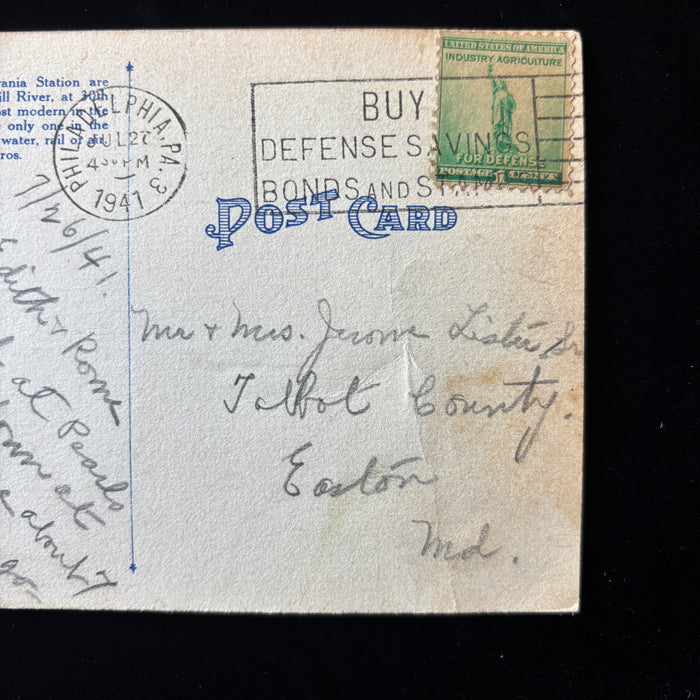 vania Station are
ill River, at 30th
ost modern in the
e only one in the
water, rail or air
ros.
PHILADELPHIA, PA. 3
JUL 27
4 30 PM
1941
BUY
DEFENSE SAVINGS
BONDS AND STAMPS
UNITED STATES OF AMERICA
INDUSTRY AGRICULTURE
FOR DEFENSE
POSTAGE 1 CENT
POST CARD
7/26/41.
Edith & Rome
at Pearls
at
about
go
Mr & Mrs. Jerome Lister Sr
Talbot County.
Easton
Md.